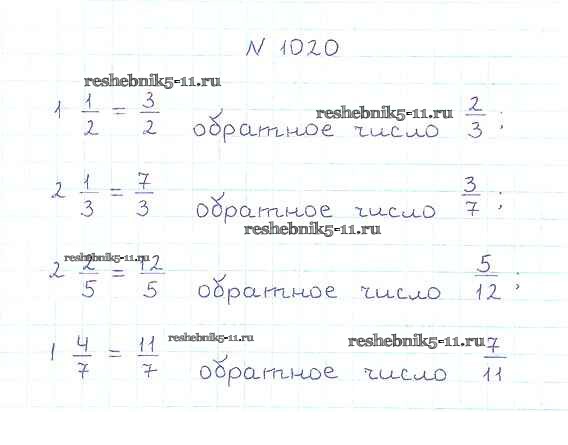 N 1020
reshebnik5-11.ru
1 1/2 = 3/2 обратное число 2/3 ;
reshebnik5-11.ru
2 1/3 = 7/3 обратное число 3/7 ;
reshebnik5-11.ru
reshebnik5-11.ru
2 2/5 = 12/5 обратное число 5/12 ;
reshebnik5-11.ru
reshebnik5-11.ru
1 4/7 = 11/7 обратное число 7/11